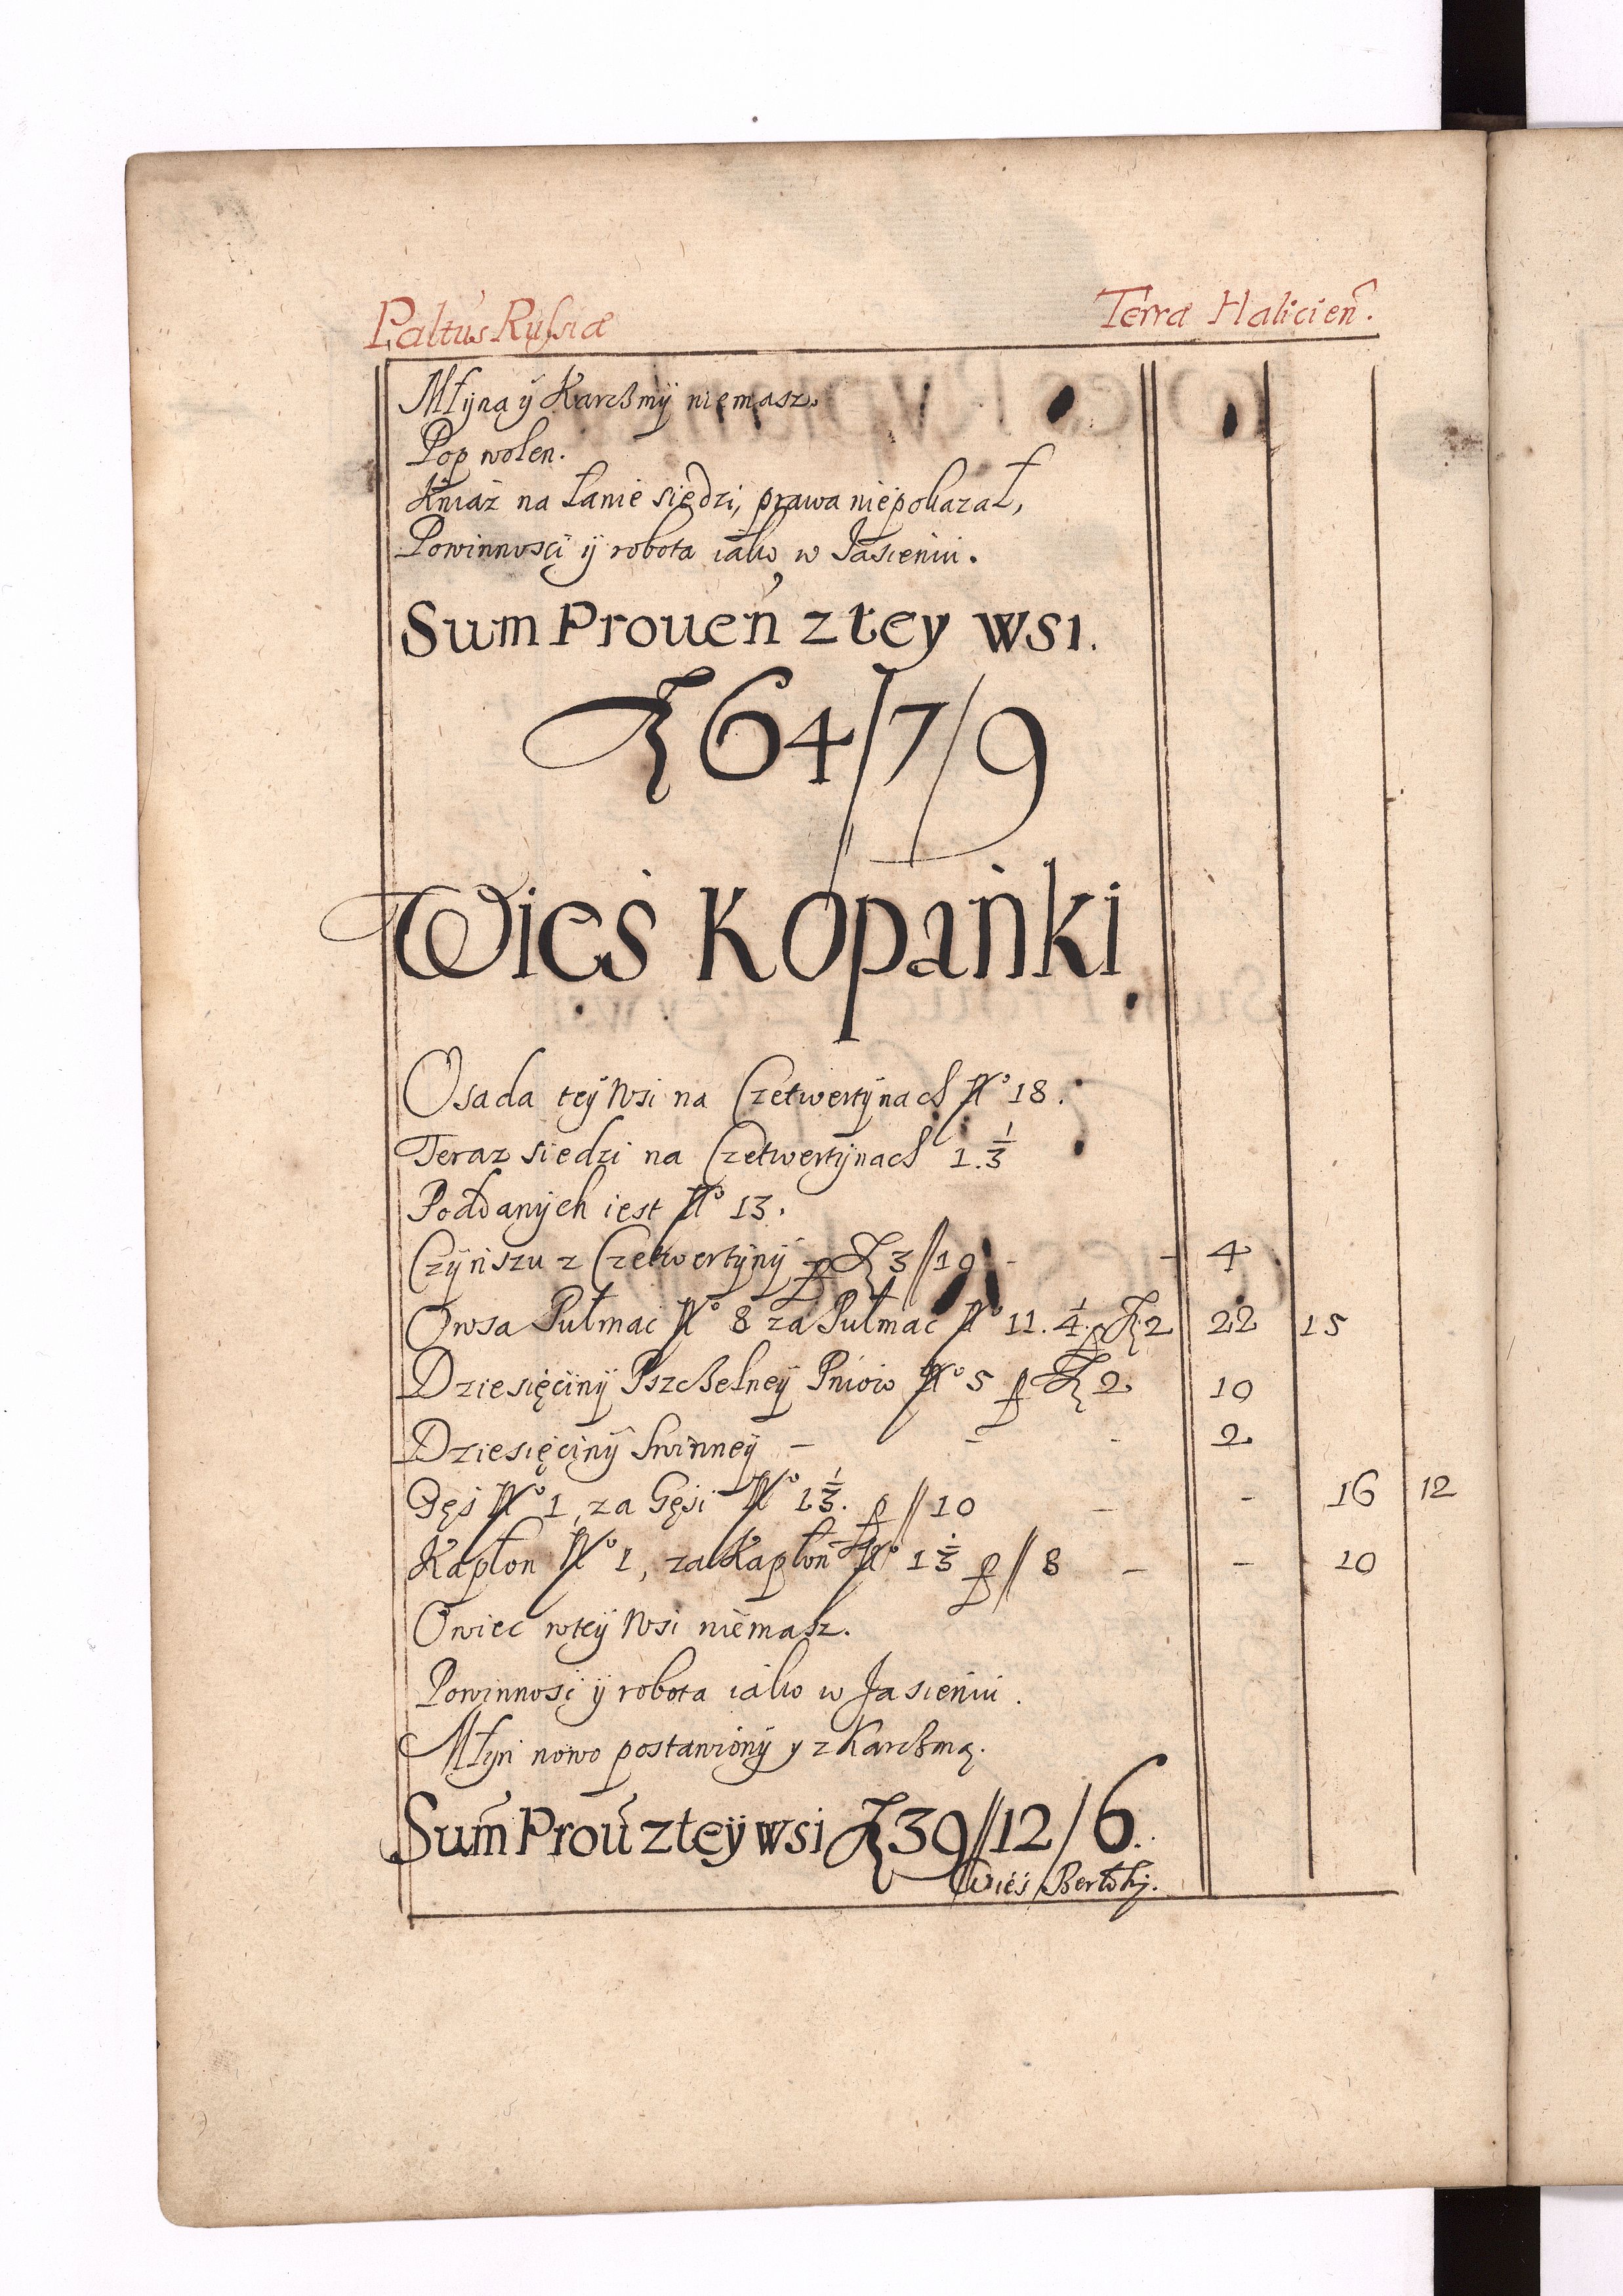 Paltus Russiæ Terræ Halicien.
Młÿną ÿ Karczmÿ niemasz.
Pop wolen.
Kniaź na łanie siedzi, prawa niepokazał,
Powinnosçi ÿ robota iako w Jasieniu.
Sum Prouen z tey wsi.
64/7/9
Wieś Kopańki
Osada teÿ Wsi na Czetwertÿnach No 18.
Teraz siedzi na Czetwertÿnach 1.1/3
Poddanÿch iest No 13.
Czÿnszu z Czetwertÿnÿ p 3//10 - - 4
Owsa Pułmac No 8 za Pułmac No 11.1/4. p 2 22 15
Dziesięćinÿ Pszczelneÿ Pniow No 5 p 2 10
Dziesięćinÿ Swinneÿ - - - 2
Gęś No 1, za Gęsi No 1 1/3. p//10 - - 16 12
Kapłon No 1, za Kapłon No 1 1/3 p//8 - - 10
Owiec wteÿ Wsi niemasz.
Powinnosçi ÿ robota iako w Jasieniu.
Młÿn nowo postawionÿ y z Karczmą.
Sum Prou z teÿ wsi 39//12/6.
Wieś